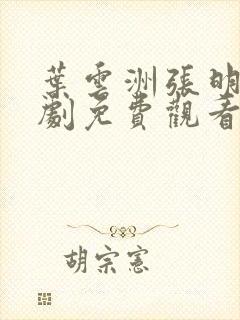 葉雲洲張明
劇免費觀看
胡宗憲